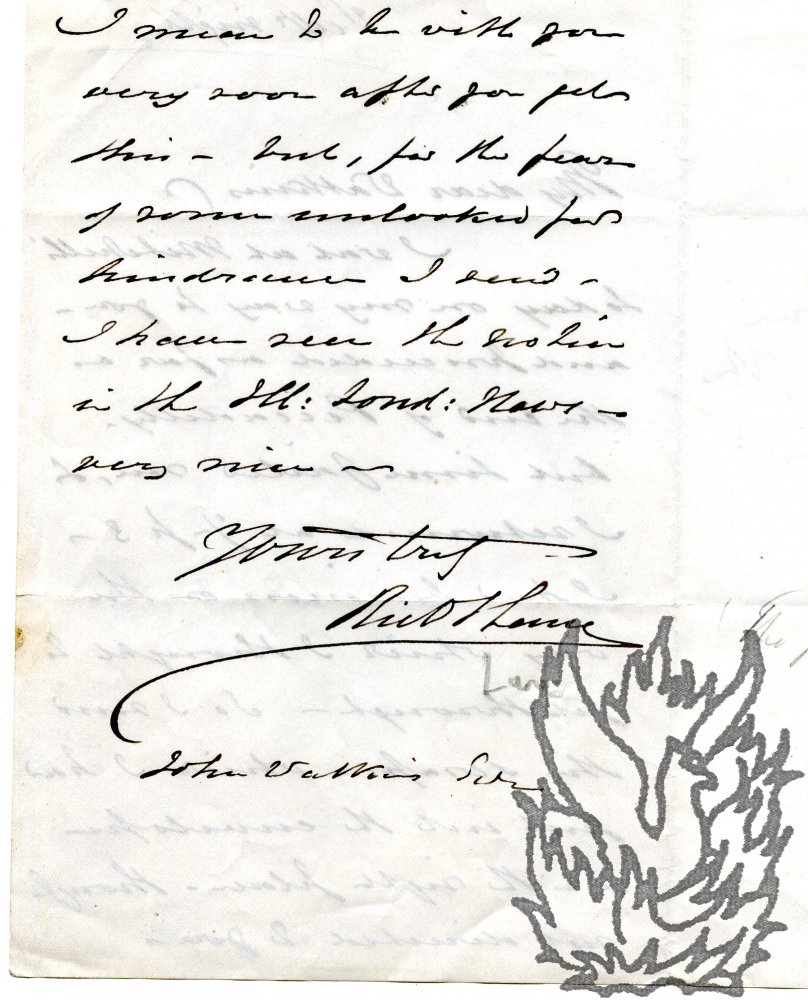 I mean to be with you
very soon after you get
this – but, for the fear
of some unlooked for
hindrance I send –
I have seen the notice
in the Ill: Lond: News –
very nice –
Yours truly
Richd J Lane
Lane
John Watkins Esqr